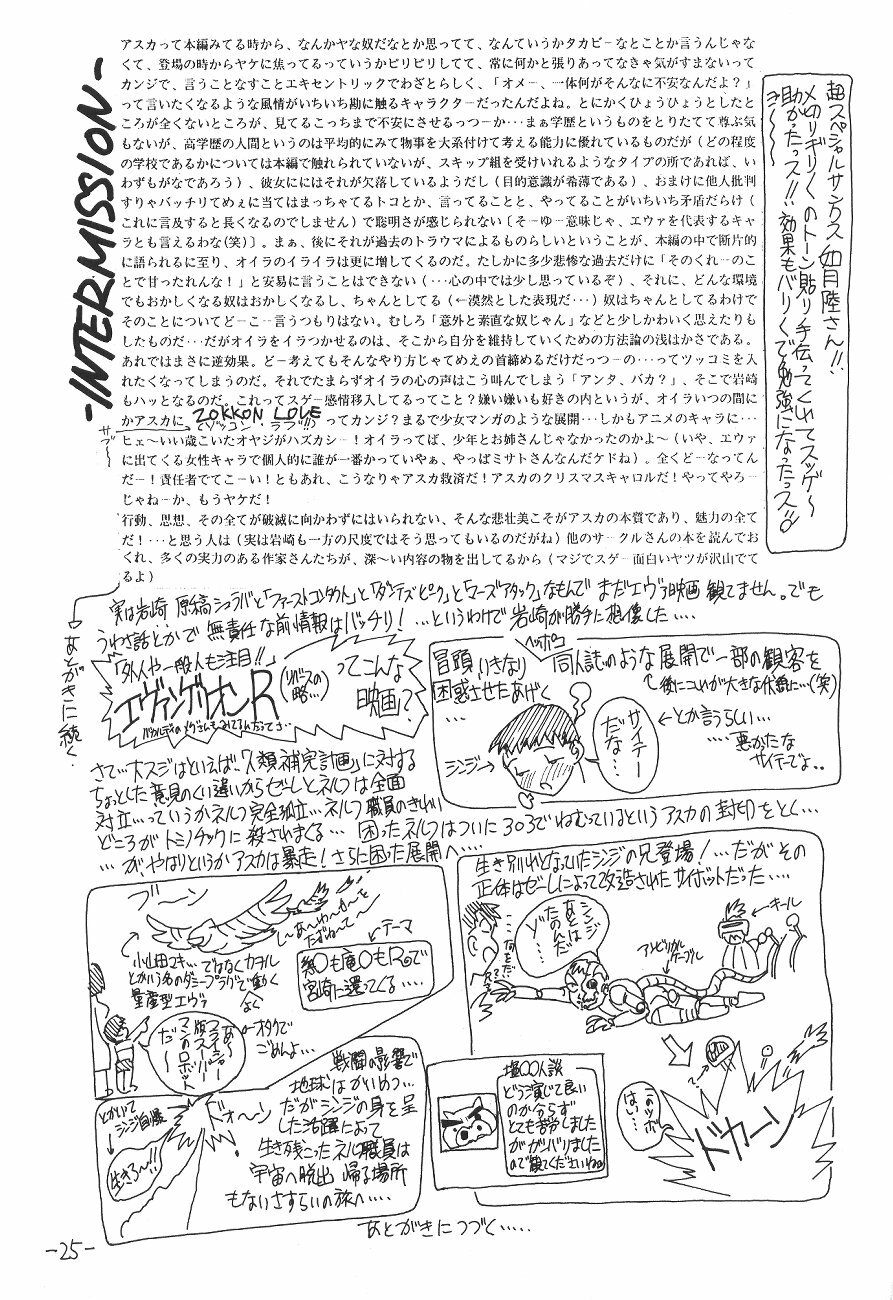 -INTERMISSION-
アスカって本編みてる時から、なんかヤな奴だなとか思ってて、なんていうかタカビーなとことか言うんじゃな
くて、登場の時からヤケに焦ってるっていうかピリピリしてて、常に何かと張りあってなきゃ気がすまないって
カンジで、言うことなすことエキセントリックでわざとらしく、「オメー、一体何がそんなに不安なんだよ？」
って言いたくなるような風情がいちいち勘に触るキャラクターだったんだよね。とにかくひょうひょうとしたと
ころが全くないところが、見てるこっちまで不安にさせるっつーか…まぁ学歴というものをとりたてて尊ぶ気
もないが、高学歴の人間というのは平均的にみて物事を大系付けて考える能力に優れているものだが（どの程度
の学校であるかについては本編で触れられていないが、スキップ組を受けいれるようなタイプの所であれば、い
わずもがなであろう）、彼女ににはそれが欠落しているようだし（目的意識が希薄である）、おまけに他人批判
すりゃバッチリてめぇに当てはまっちゃてるトコとか、言ってることと、やってることがいちいち矛盾だらけ（
これに言及すると長くなるのでしません）で聡明さが感じられない〔そーゆー意味じゃ、エヴァを代表するキャ
ラとも言えるわな(笑)〕。まぁ、後にそれが過去のトラウマによるものらしいということが、本編の中で断片的
に語られるに至り、オイラのイライラは更に増してくるのだ。たしかに多少悲惨な過去だけに「そのくれーのこ
とで甘ったれんな！」と安易に言うことはできない（…心の中では少し思っているぞ）、それに、どんな環境
でもおかしくなる奴はおかしくなるし、ちゃんとしてる（←漠然とした表現だ…）奴はちゃんとしてるわけで
そのことについてどーこー言うつもりはない。むしろ「意外と素直な奴じゃん」などと少しかわいく思えたりも
したものだ…だがオイラをイラつかせるのは、そこから自分を維持していくための方法論の浅はかさである。
あれではまさに逆効果。どー考えてもそんなやり方じゃてめえの首締めるだけだっつーの…ってツッコミを入
れたくなってしまうのだ。それでたまらずオイラの心の声はこう叫んでしまう「アンタ、バカ？」、そこで岩崎
もハッとなるのだ。これってスゲー感情移入してるってこと？嫌い嫌いも好きの内というが、オイラいつの間に
かアスカに ZOKKON LOVE（ゾッコン・ラブ!!）ってカンジ？まるで少女マンガのような展開…しかもアニメのキャラに…
サブ〜
ヒェ〜いい歳こいたオヤジがハズカシー！オイラってば、少年とお姉さんじゃなかったのかよ〜（いや、エヴァ
に出てくる女性キャラで個人的に誰が一番かっていやぁ、やっぱミサトさんなんだケドね）。全くどーなってん
だー！責任者でてこーい！ともあれ、こうなりゃアスカ救済だ！アスカのクリスマスキャロルだ！やってやろー
じゃねーか、もうヤケだ！
行動、思想、その全てが破滅に向かわずにはいられない、そんな悲壮美こそがアスカの本質であり、魅力の全て
だ！…と思う人は（実は岩崎も一方の尺度ではそう思ってもいるのだがね）他のサークルさんの本を読んでお
くれ、多くの実力のある作家さんたちが、深〜い内容の物を出してるから（マジでスゲー面白いヤツが沢山でて
るよ）
超スペシャルサンクス 如月陸さん!!
〆切りギリギリのトーン貼り手伝ってくれてスッゲ〜
助かったっス!! 効果もバリバリで勉強になったっス!!
あとがきに続く
実は岩崎 原稿シュラバと「ファーストコンタクト」と「ダンテズ・ピーク」と「マーズアタック」なもんで まだエヴァ映画 観てません。でも
うわさ話とかで 無責任な前情報はバッチリ！…というわけで 岩崎が勝手に想像した…
「外人や一般人も注目!!」
エヴァンゲリオンR（リバースの略…）
ってこんな
映画？
冒頭 いきなり ヘッポコ同人誌のような展開で一部の観客を
困惑させたあげく
…
後にコレが大きな伏線に…(笑)
シンジ→
サイテーだな…
←とか言うらしい…
…悪かたな
サイテーでよ..
さて…大スジはといえば、「人類補完計画」に対する
ちょっとした意見のくい違いからゼーレとネルフは全面
対立…っていうかネルフ完全孤立…ネルフ職員のきれい
どころがトミノチックに殺されまくる… 困ったネルフはついに303でねむっているというアスカの封印をとく…
…が、やはりというかアスカは暴走！さらに困った展開へ…
ブーン
小山田マキ…ではなくカヲル
とかいう名のダミープラグで動く
量産型エヴァ
←テーマ
宮崎に還ってくる…
あ〜
フライシャー版スーパーマンのロボットだ〜
←オタクで
ごめんよ…
生き別れとなっていたシンジの兄登場！…だがその
正体はゼーレによって改造されたサイボットだった…
シンジ
あとはたのんだゾ…
アンビリカルケーブル
←キール
ドカーン
このツボはいい…
塩○○人談
どう演じて良い
のか分らず
とても苦労しました
がガンバリました
ので観てくださいね
とかいって
シンジ自爆
生きろ〜!!
ドォーン
戦闘の影響で
地球はかいめつ…
だがシンジの身を呈
した活躍によって
生き残こったネルフ職員は
宇宙へ脱出 帰る場所
もないさすらいの旅へ…
あとがきにつづく…
-25-